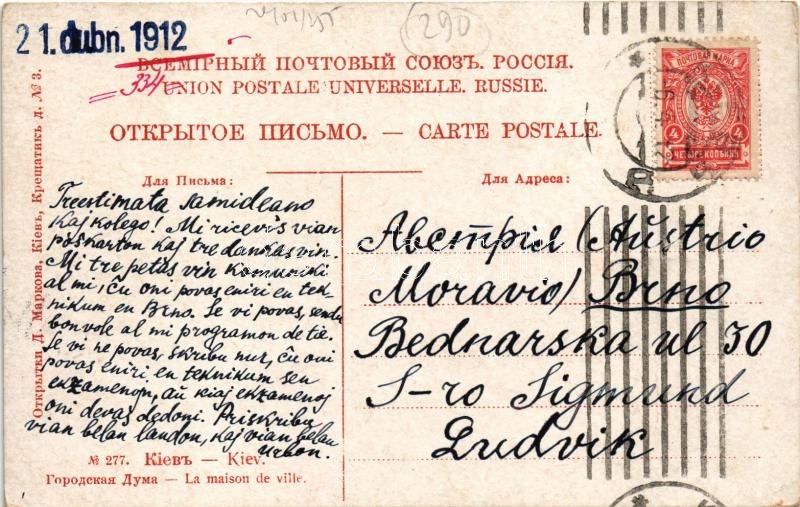 21. dubn. 1912
(290)
ВСЕМІРНЫЙ ПОЧТОВЫЙ СОЮЗЪ. РОССІЯ.
334
UNION POSTALE UNIVERSELLE. RUSSIE.
ОТКРЫТОЕ ПИСЬМО. — CARTE POSTALE.
ПОЧТОВАЯ МАРКА
4 4
ЧЕТЫРЕ КОПѢЙКИ
Открытки Д. Маркова, Кіевъ, Крещатикъ д. № 3.
Для Письма:
Treestimata samideano
Kaj kolego! Mi ricevis vian
poŝkarton kaj tre dankas vin.
Mi tre petas vin komuniki
al mi, ĉu oni povas eniri en tek-
nikum en Brno. Se vi povas, sendu
bonvole al mi programon de tie.
Se vi ne povas, skribu nur, ĉu oni
povas eniri en teknikum sen
ekzamenojn, aŭ kiaj ekzamenoj
oni devas dedoni. Priskribu
vian belan landon, kaj vian belan
urbon.
Для Адреса:
Австрія (Aŭstrio
Moravio) Brno
Bednarska ul 30
S-ro Sigmund
Ludvik
№ 277. Кіевъ — Kiev.
Городская Дума — La maison de ville.